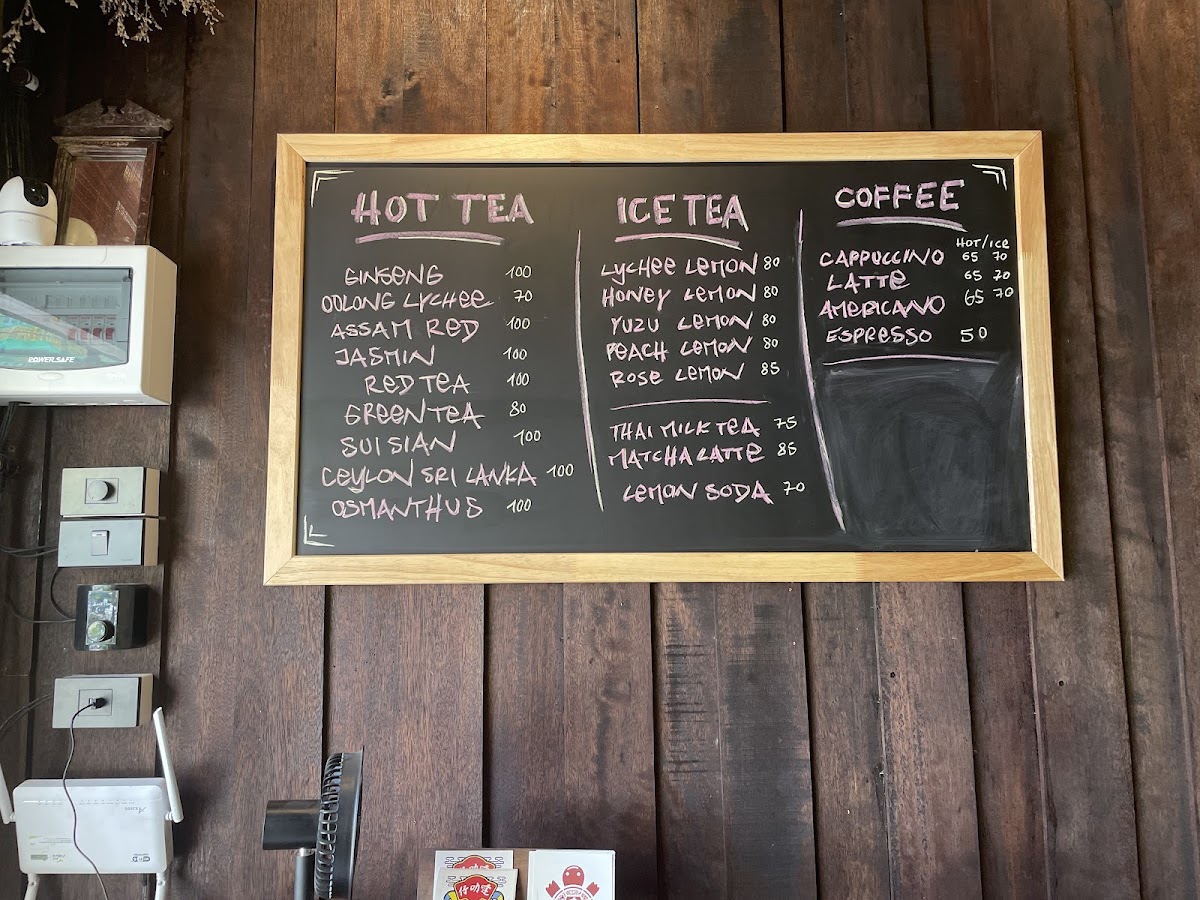 HOT TEA
GINSENG 100
OOLONG LYCHEE 70
ASSAM RED 100
JASMIN 100
RED TEA 100
GREEN TEA 80
SUI SIAN 100
CEYLON SRI LANKA 100
OSMANTHUS 100
ICE TEA
LYCHEE LEMON 80
HONEY LEMON 80
YUZU LEMON 80
PEACH LEMON 80
ROSE LEMON 85
THAI MILK TEA 75
MATCHA LATTE 85
LEMON SODA 70
COFFEE
HOT/ICE
CAPPUCCINO 65 70
LATTE 65 70
AMERICANO 65 70
ESPRESSO 50
POWER.SAFE